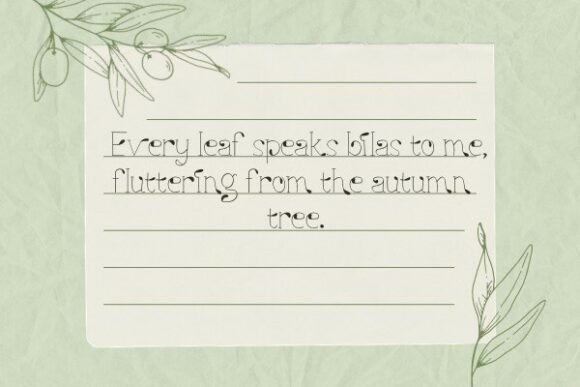 Every leaf speaks bilas to me,
fluttering from the autumn
tree.